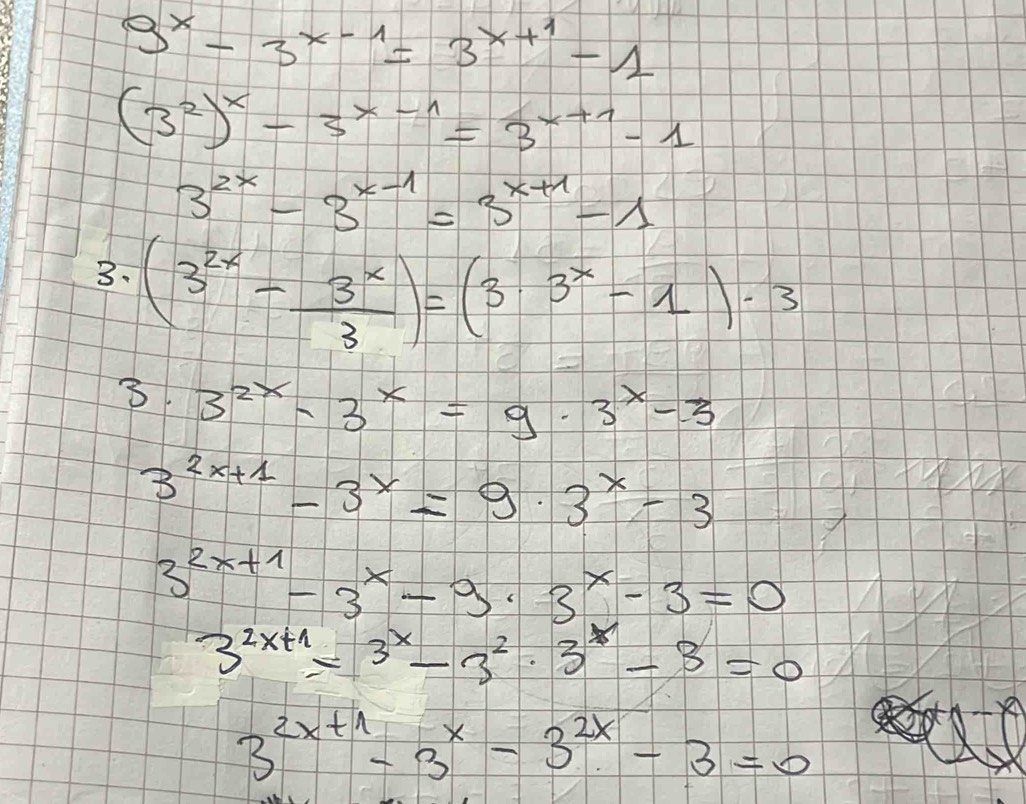 9^x - 3^{x-1} = 3^{x+1} - 1
(3^2)^x - 3^{x-1} = 3^{x+1} - 1
3^{2x} - 3^{x-1} = 3^{x+1} - 1
3 · (3^{2x} - \frac{3^x}{3}) = (3 · 3^x - 1) · 3
3 · 3^{2x} - 3^x = 9 · 3^x - 3
3^{2x+1} - 3^x = 9 · 3^x - 3
3^{2x+1} - 3^x - 9 · 3^x - 3 = 0
3^{2x+1} = 3^x - 3^2 · 3^x - 3 = 0
3^{2x+1} - 3^x - 3^{2x} - 3 = 0